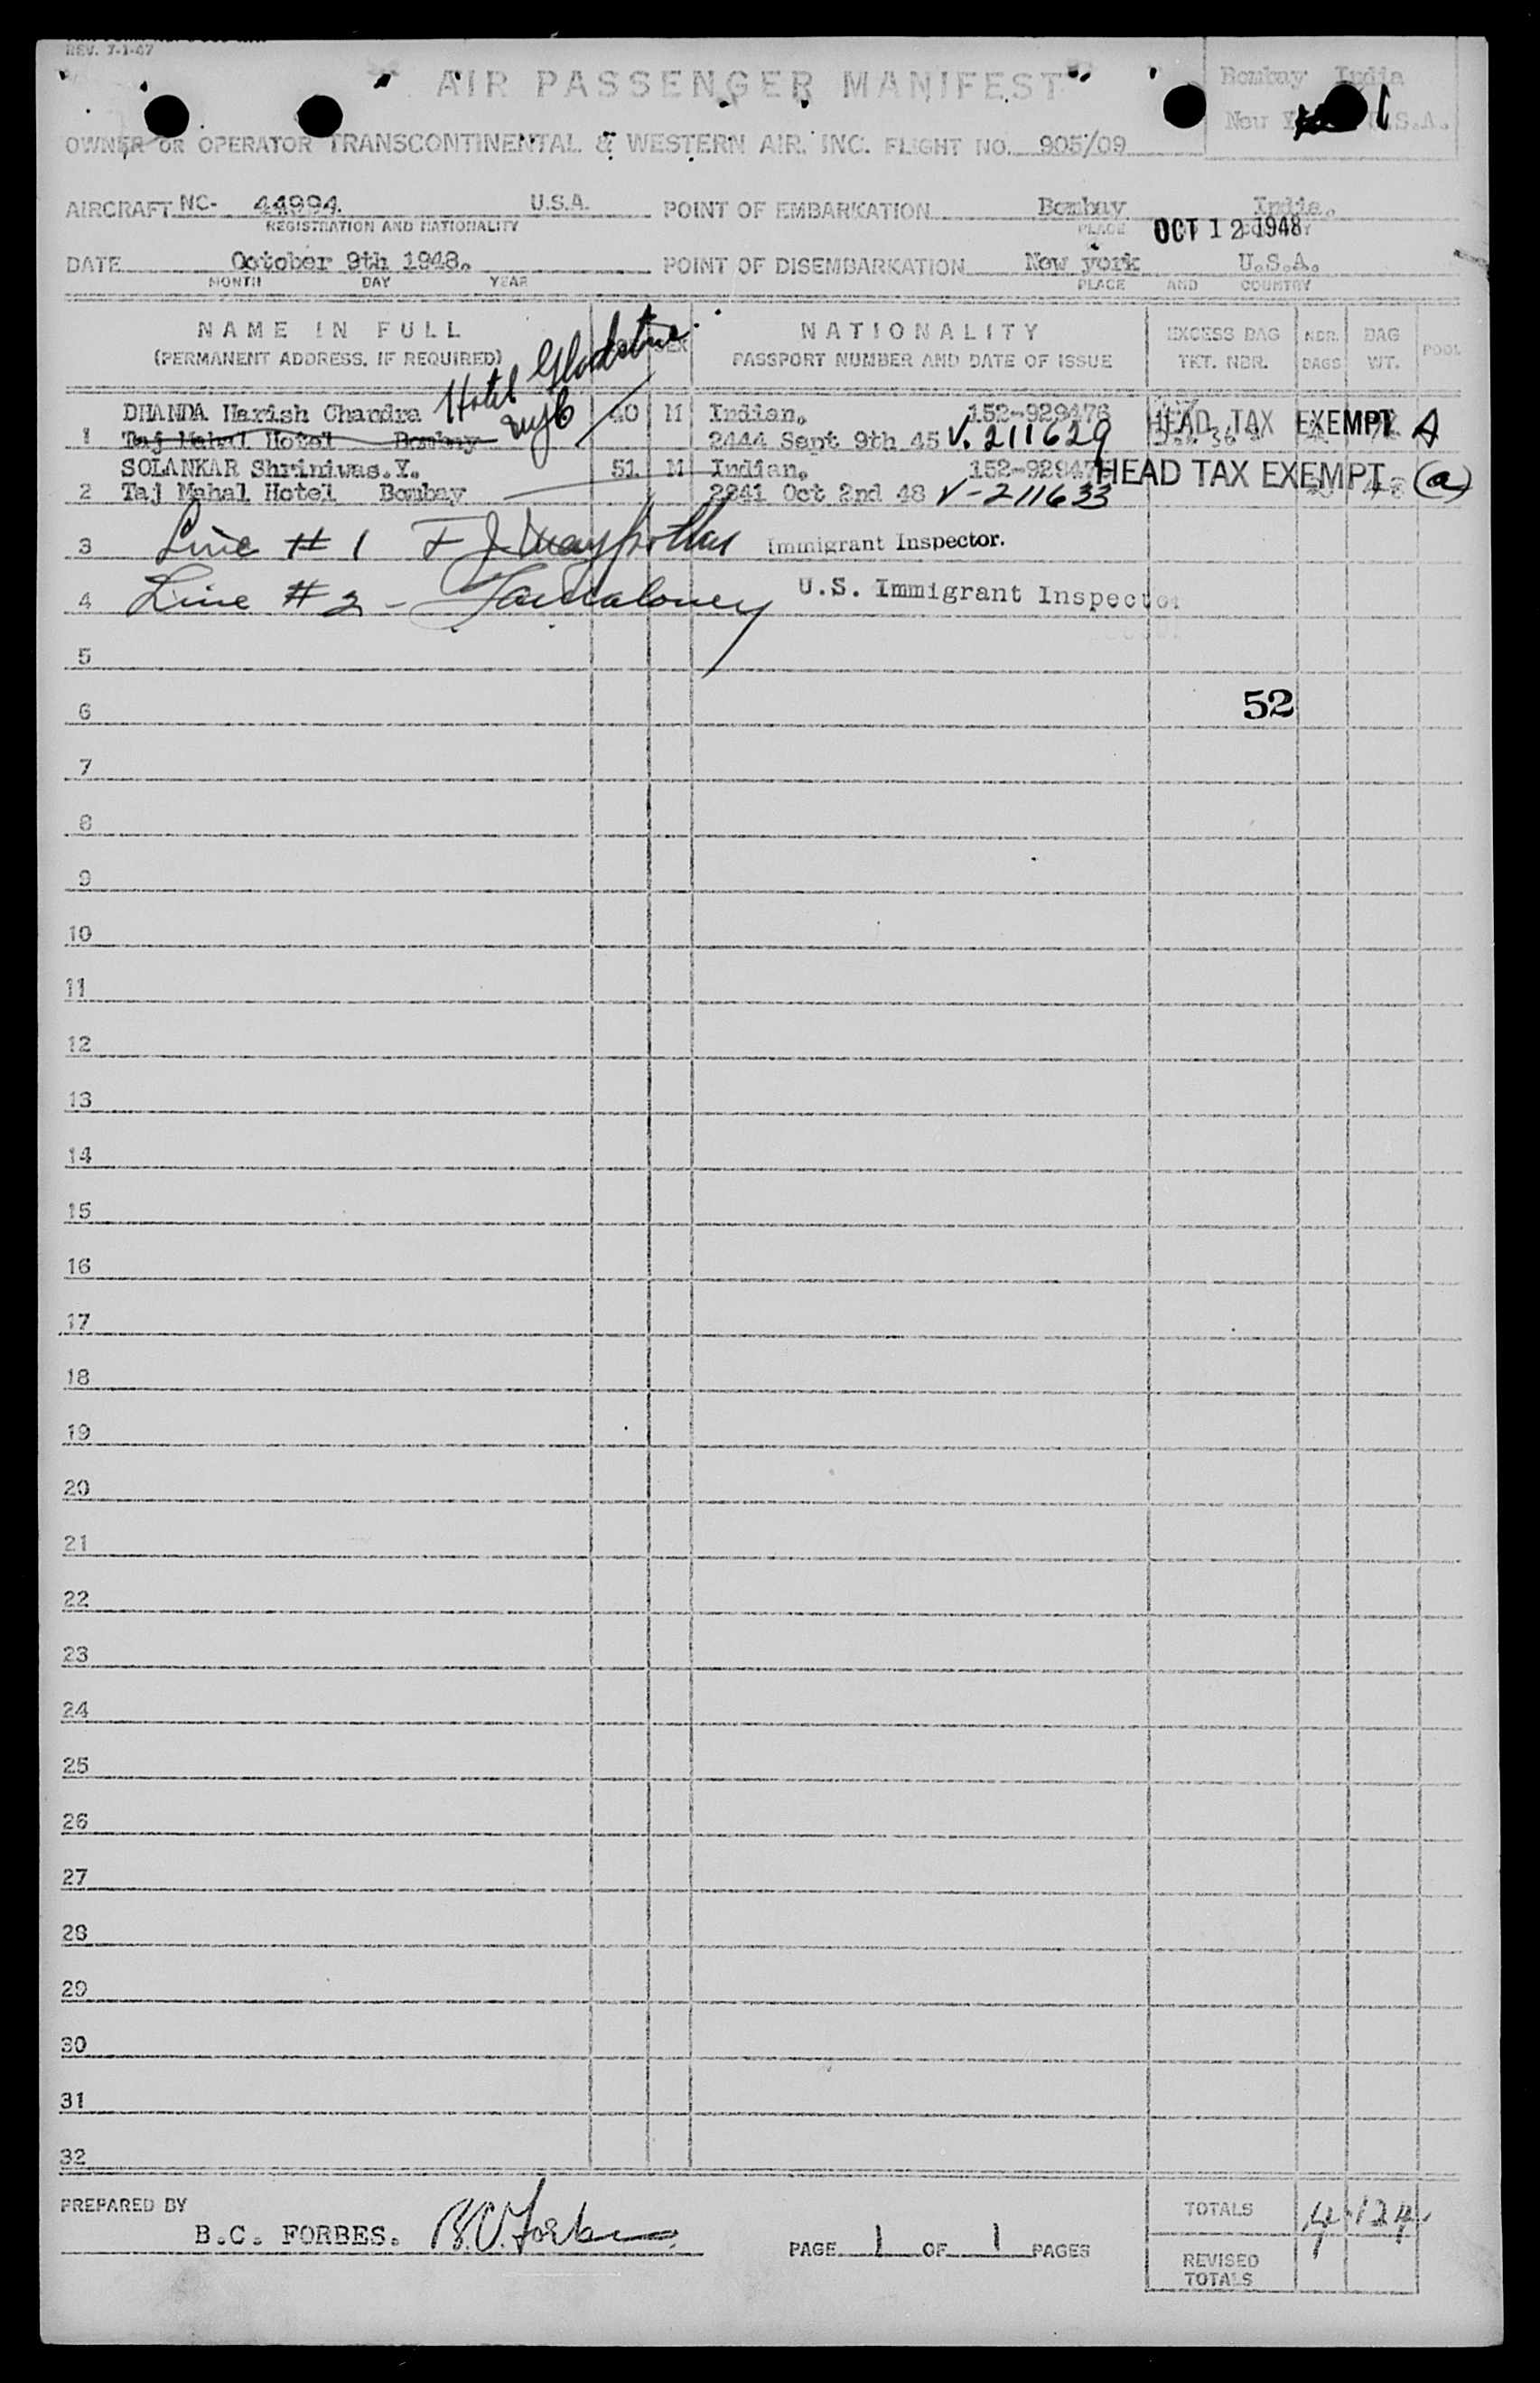 REV. 7-1-47
AIR PASSENGER MANIFEST
Bombay India
New U.S.A. 1
OWNER OR OPERATOR TRANSCONTINENTAL & WESTERN AIR. INC. FLIGHT NO. 905/09
AIRCRAFT NC- 44994. U.S.A. POINT OF EMBARKATION Bombay India.
REGISTRATION AND NATIONALITY PLACE OCT 12 1948
DATE October 9th 1948. POINT OF DISEMBARKATION New york U.S.A.
MONTH DAY YEAR PLACE AND COUNTRY
NAME IN FULL NATIONALITY EXCESS BAG NBR. BAG POOL
(PERMANENT ADDRESS. IF REQUIRED) SEX PASSPORT NUMBER AND DATE OF ISSUE TKT. NBR. BAGS WT.
Hotel Gladstone
nyc
DHANDA Harish Chandra 40 M Indian. 152-929476 HEAD TAX EXEMPT A
1 Taj Mahal Hotel Bombay 2444 Sept 9th 45 V. 211629
SOLANKAR Shriniwas.Y. 51. M Indian. 152-92947 HEAD TAX EXEMPT (a)
2 Taj Mahal Hotel Bombay 2241 Oct 2nd 48 V-211633
3 Line # 1 Immigrant Inspector.
4 Line # 2 - U.S. Immigrant Inspector
5
6 52
7
8
9
10
11
12
13
14
15
16
17
18
19
20
21
22
23
24
25
26
27
28
29
30
31
32
PREPARED BY TOTALS 4 124
B.C. FORBES. B.C. Forbes PAGE 1 OF 1 PAGES
REVISED
TOTALS